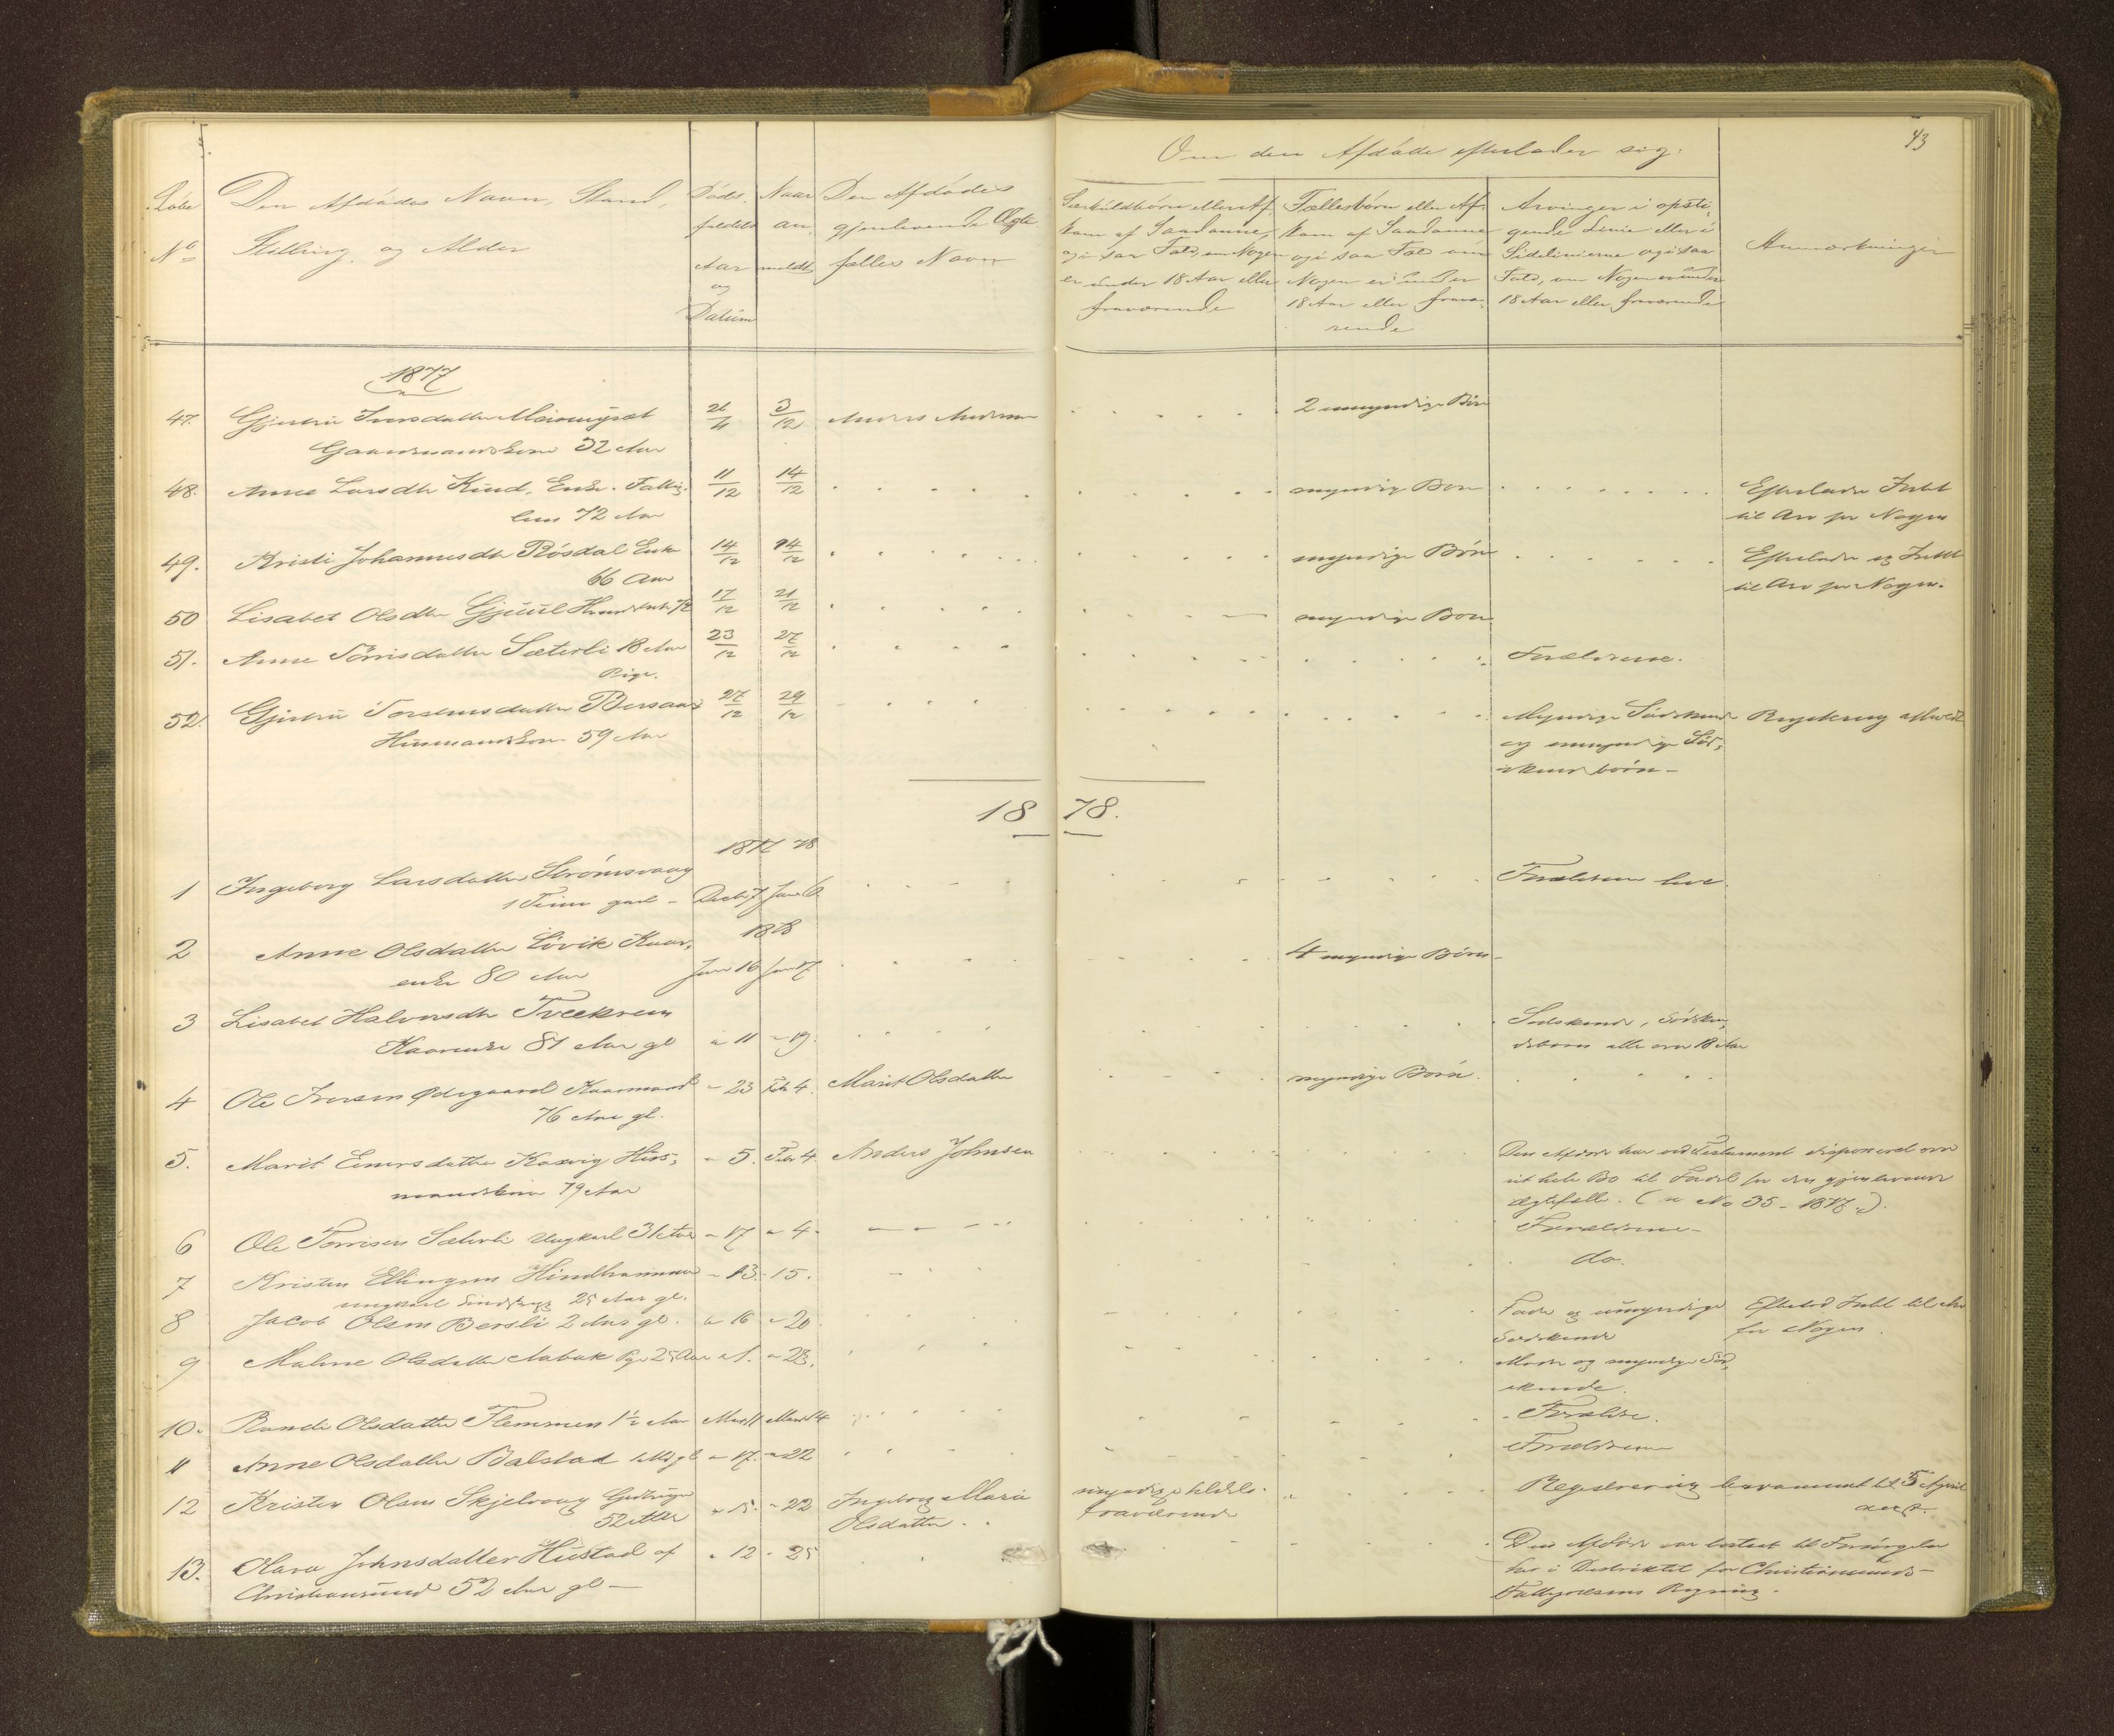 43
Om den Afdøde efterlader sig:
Løbe No
Den Afdødes Navn, Stand,
Stilling og Alder
Døds-
faldets
Aar
og
Datum
Naar
an-
meldt
Den Afdødes
gjenlevende Ægte-
fælles Navn
Særkuldbørn eller Af-
kom af Saadanne,
og i saa Fald, om Nogen
er under 18 Aar eller
fraværende
Fællesbørn eller Af-
kom af Saadanne
og i saa Fald om
Nogen er under
18 Aar eller fravæ-
rende
Arvinger i opsti-
gende Linie eller i
Sidelinierne og i saa
Fald, om Nogen er under
18 Aar eller fraværende
Anmærkninger
1877
47. Gjertru Iversdatter 21/11 3/12 Anders Andersen 2 umyndige Børn
Gaardmandskone 32 Aar
48. Anne Larsdtr Kind, Enke. Fattig- 11/12 14/12 myndig Børn Efterlader Intet
lem 72 Aar til Arv for Nogen
49. Kristi Johannesdtr Røsdal Enke 14/12 14/12 myndige Børn Efterlader og Intet
66 Aar til Arv for Nogen.
50 Lisabet Olsdtr Gjuul 72 17/12 21/12 myndige Børn
51. Anne Tørrisdatter Sæterli 18 Aar 23/12 27/12 Forældrene.
Pige.
52. Gjertru Torstensdatter Bersaas 27/12 29/12 Myndige Sødskende Registrering afholdt
Husmandskone 59 Aar og umyndige Sød-
skendebørn -
1878.
1877 78
1 Ingeborg Larsdatter Strømsvaag Forældrene leve.
1 Time gml - Decbr 7 Janr 6.
1878
2 Anne Olsdatter Løvik Kaar- 4 myndige Børn -
enke 80 Aar Janr 16 Janr 17
3 Lisabet Halvorsdtr Tverkrem Sødskende, Sødsken-
Kaarenke 81 Aar gl " 11 " 19. debørn alle over 18 Aar
4 Ole Iversen Ødegaard Kaarmand - 23 Febr 4. Marit Olsdatter myndige Børn.
76 Aar gl.
5. Marit Einersdatter Kaxvig Hus- - 5. Febr 4 Anders Johnsen Den Afdøde har ved Testament disponeret over
mandskone 79 Aar sit hele Bo til Fordel for den gjenlevende
Ægtefælle. (se No 35 - 1877.)
6 Ole Tørrisen Sæterli Ungkarl 31 Aar " 17 " 4. Forældrene -
7 Kristen Ellingsen Hindhammer - 13. - 15. do.
ungkarl Sindssyg 25 Aar gl.
8 Jacob Olsen Bersli 2 Aar gl. " 16 " 20 Fader og umyndige Efterlod Intet til Arv
Sødskende for Nogen.
9 Malene Olsdatter Aabak Pige 25 Aar " 1. " 23. Moder og myndige Sød-
skende.
10. Randi Olsdatter Flemmen 1½ Aar Mars 11 Mars 14 Forældre.
11 Anne Olsdatter Balstad gl " 17. " 22 Forældrene
12 Kristen Olsen Skjelvaag " 15. " 22 Ingeborg Maria Registrering berammet til 5 April
52 Aar Olsdatter. fraværende
13. Olava Johnsdatter Hustad af " 12 - 25 Den Afdøde var bortsat til Forsørgelse
Christiansund 52 Aar gl - her i Distriktet for Christiansunds
Fattigvæsens Regning.